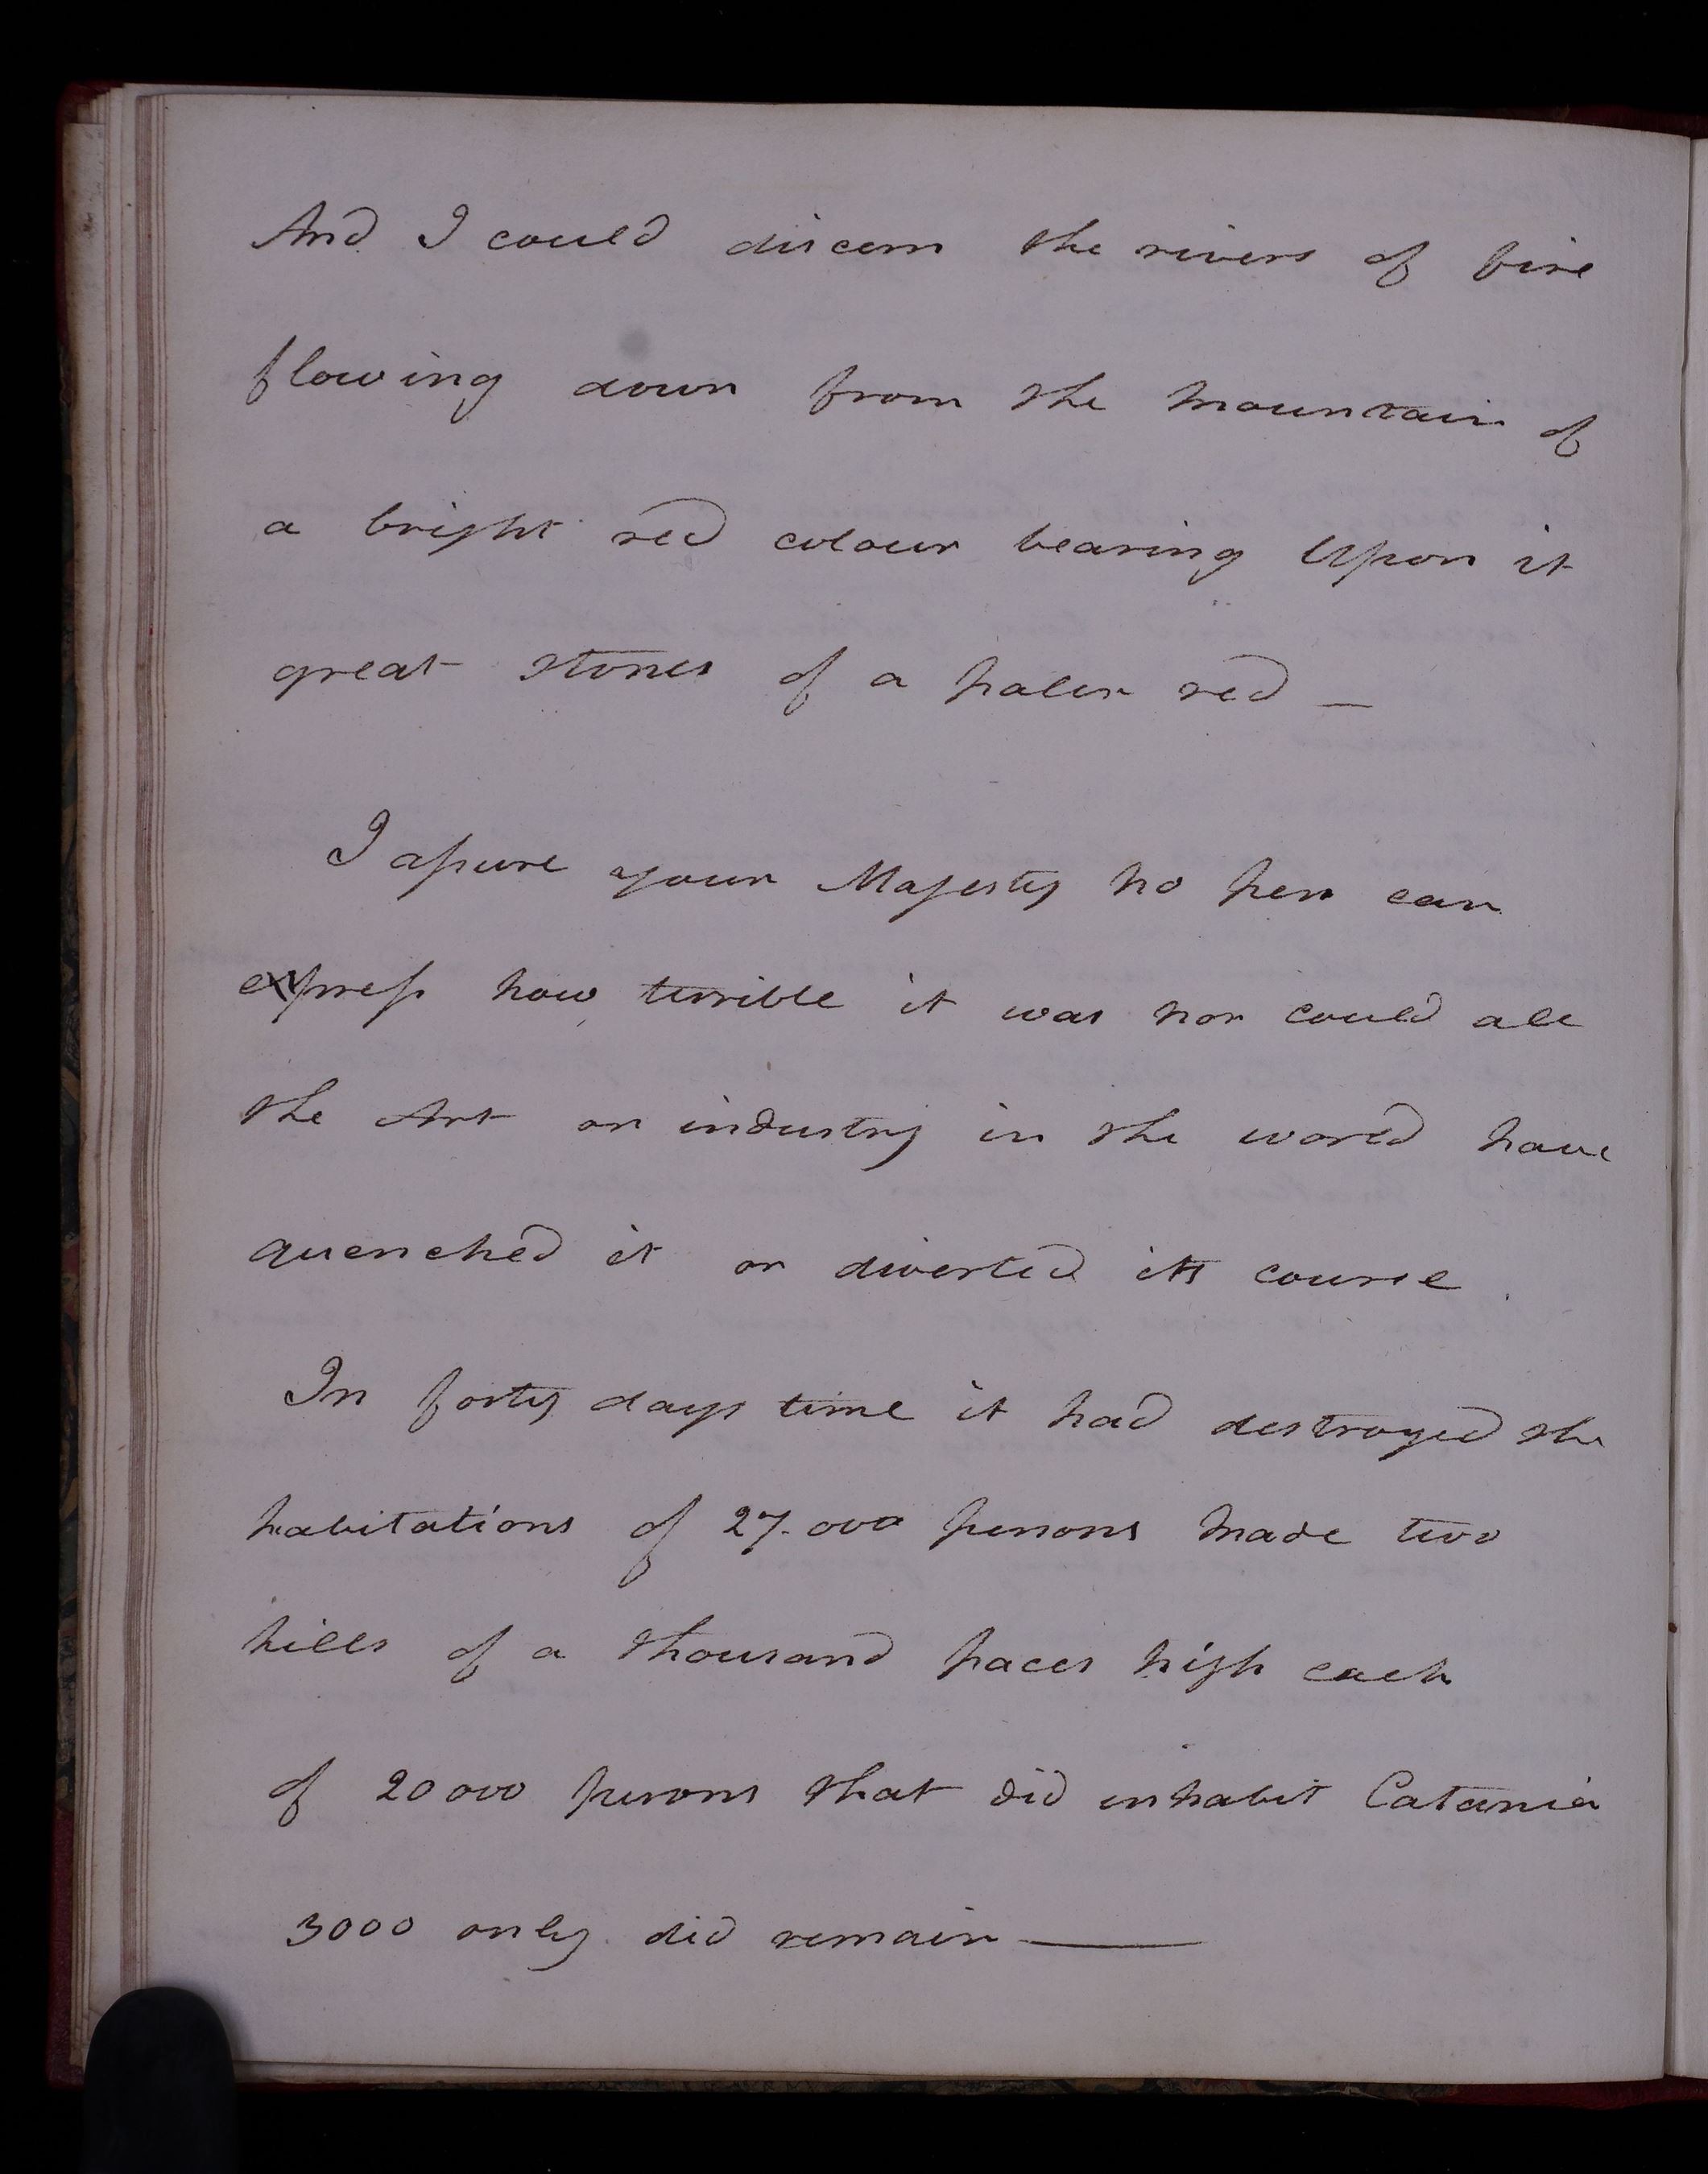 And I could discern the rivers of fire
flowing down from the mountain of
a bright red colour bearing Upon it
great stones of a paler red —
I assure your Majesty no pen can
express how terrible it was nor could all
the Art or industry in the world have
quenched it or diverted its course.
In forty days time it had destroyed the
habitations of 27.000 persons made two
hills of a thousand paces high each
of 20000 persons that did inhabit Catania
3000 only did remain —